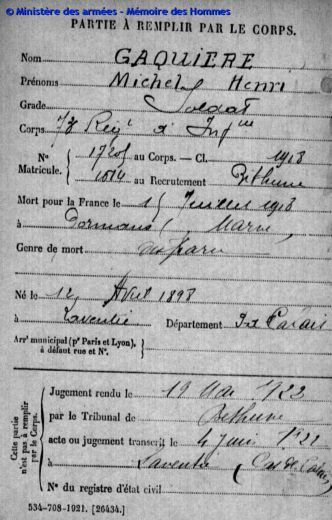 © Ministère des armées - Mémoire des Hommes
PARTIE À REMPLIR PAR LE CORPS.
Nom GAQUIÈRE
Prénoms Michel Henri
Grade Soldat
Corps 73 Reg^t d'Inf^ie
N° Matricule. { au Corps. — Cl. 1918
1014 au Recrutement Béthune
Mort pour la France le 15 1918
à Dormans (Marne)
Genre de mort disparu
Né le 12 Avril 1898
à Laventie Département Pas de Calais
Arr^t municipal (p^r Paris et Lyon), à défaut rue et N°. {
Cette partie n'est pas à remplir par le Corps.
Jugement rendu le 19 Mai 1922
par le Tribunal de Béthune
acte ou jugement transcrit le 4 juin
à Laventie (Pas de Calais)
N° du registre d'état civil
534-708-1921. [26434.]